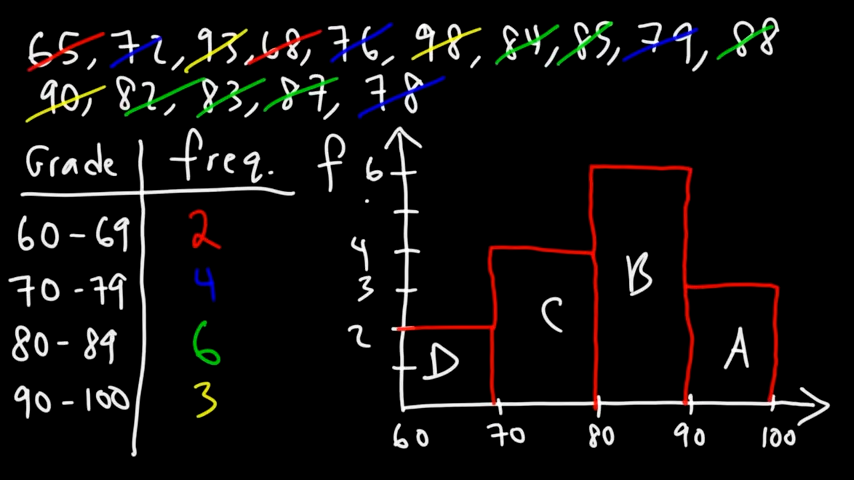 65, 72, 93, 68, 76, 98, 84, 85, 79, 88
90, 82, 83, 87, 78
Grade freq.
60-69 2
70-79 4
80-89 6
90-100 3
f
6
4
3
2
D C B A
60 70 80 90 100